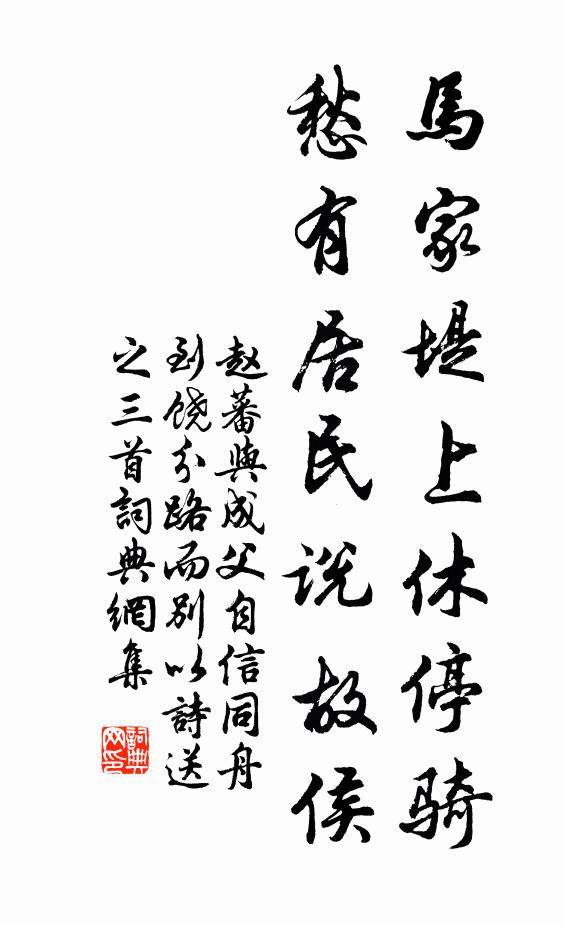 馬家堤上休停骑
愁有居民说故侯
赵蕃與成父自信同舟
到饶分路而别以詩送
之三首詞典網集
詞典网印